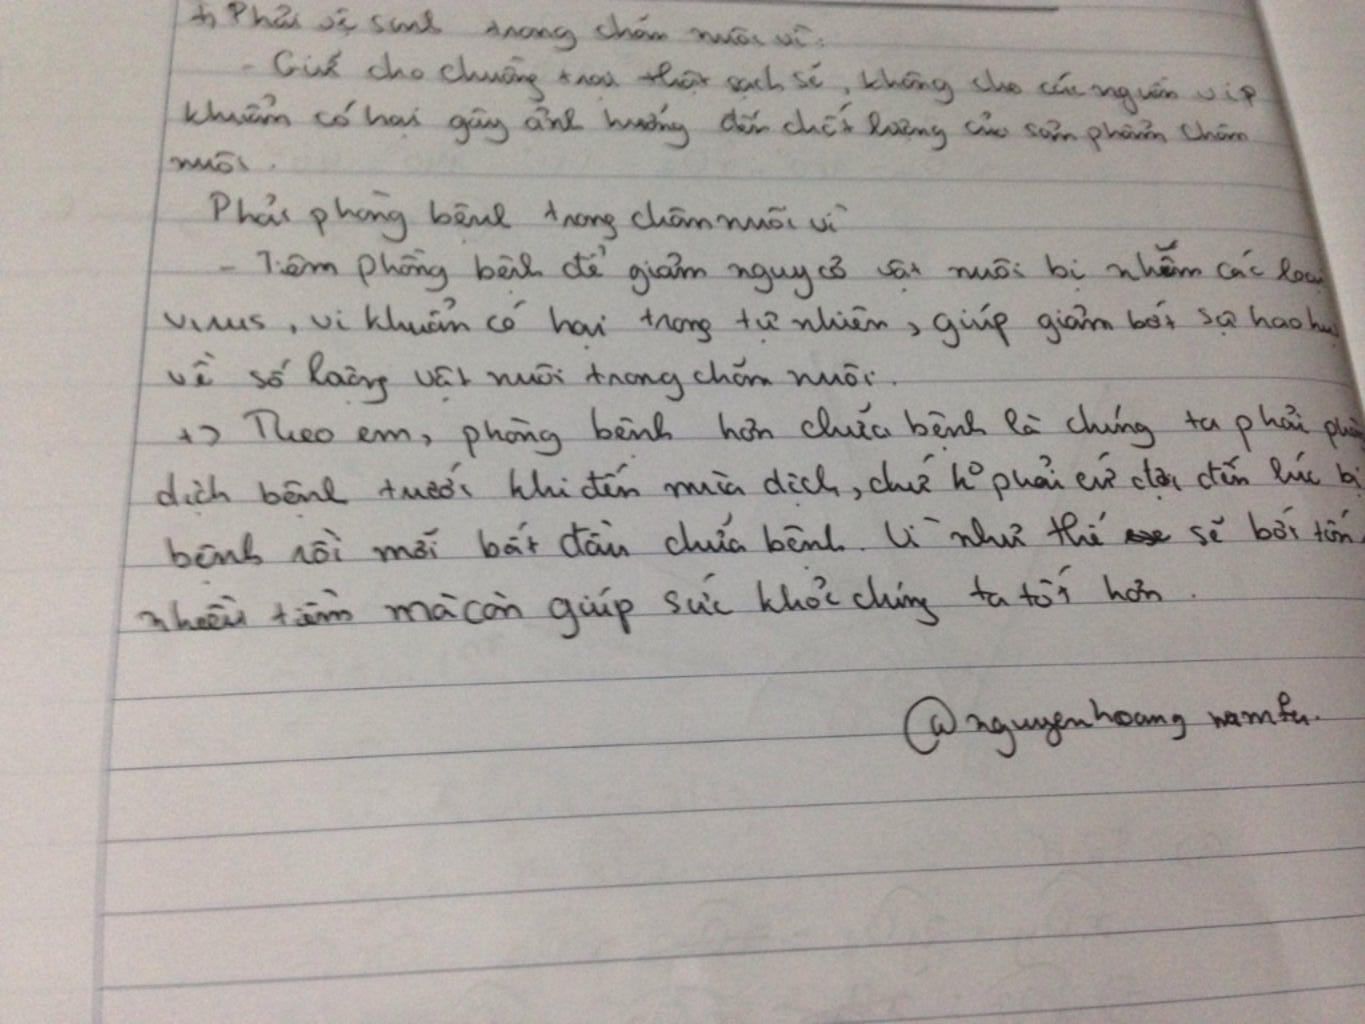 +, Phải vệ sinh trong chăn nuôi vì:
- Giữ cho chuồng trại thật sạch sẽ, không cho các nguồn vip
khuẩn có hại gây ảnh hưởng đến chất lượng của sản phẩm chăn
nuôi.
Phải phòng bệnh trong chăn nuôi vì
- Tiêm phòng bệnh để giảm nguy cơ vật nuôi bị nhễm các loại
virus, vi khuẩn có hại trong tự nhiên, giúp giảm bớt sự hao hụ
về số lượng vật nuôi trong chăn nuôi.
+> Theo em, phòng bệnh hơn chữa bệnh là chúng ta phải
dịch bệnh trước khi đến mùa dịch, chứ ko phải cứ đợi đến lúc bị
bệnh rồi mới bắt đầu chữa bệnh. Vì như thế sẽ bớt tốn
nhiều tiền mà còn giúp sức khỏe chúng ta tốt hơn.
@nguyenhoang